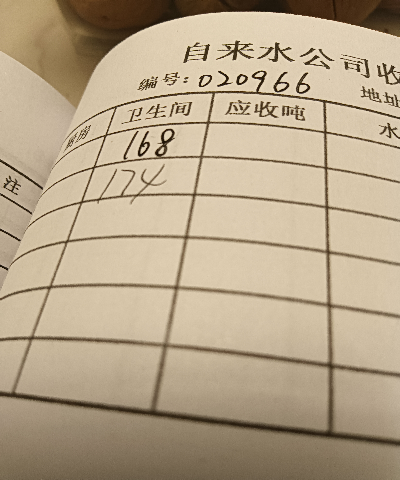 自来水公司收
编号: 020966 地址
厨房 卫生间 应收吨 水
168
174
注